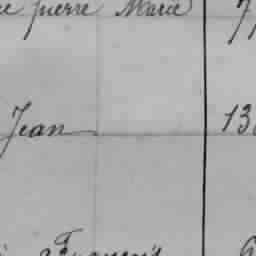 pierre Marie 7
Jean 13
François